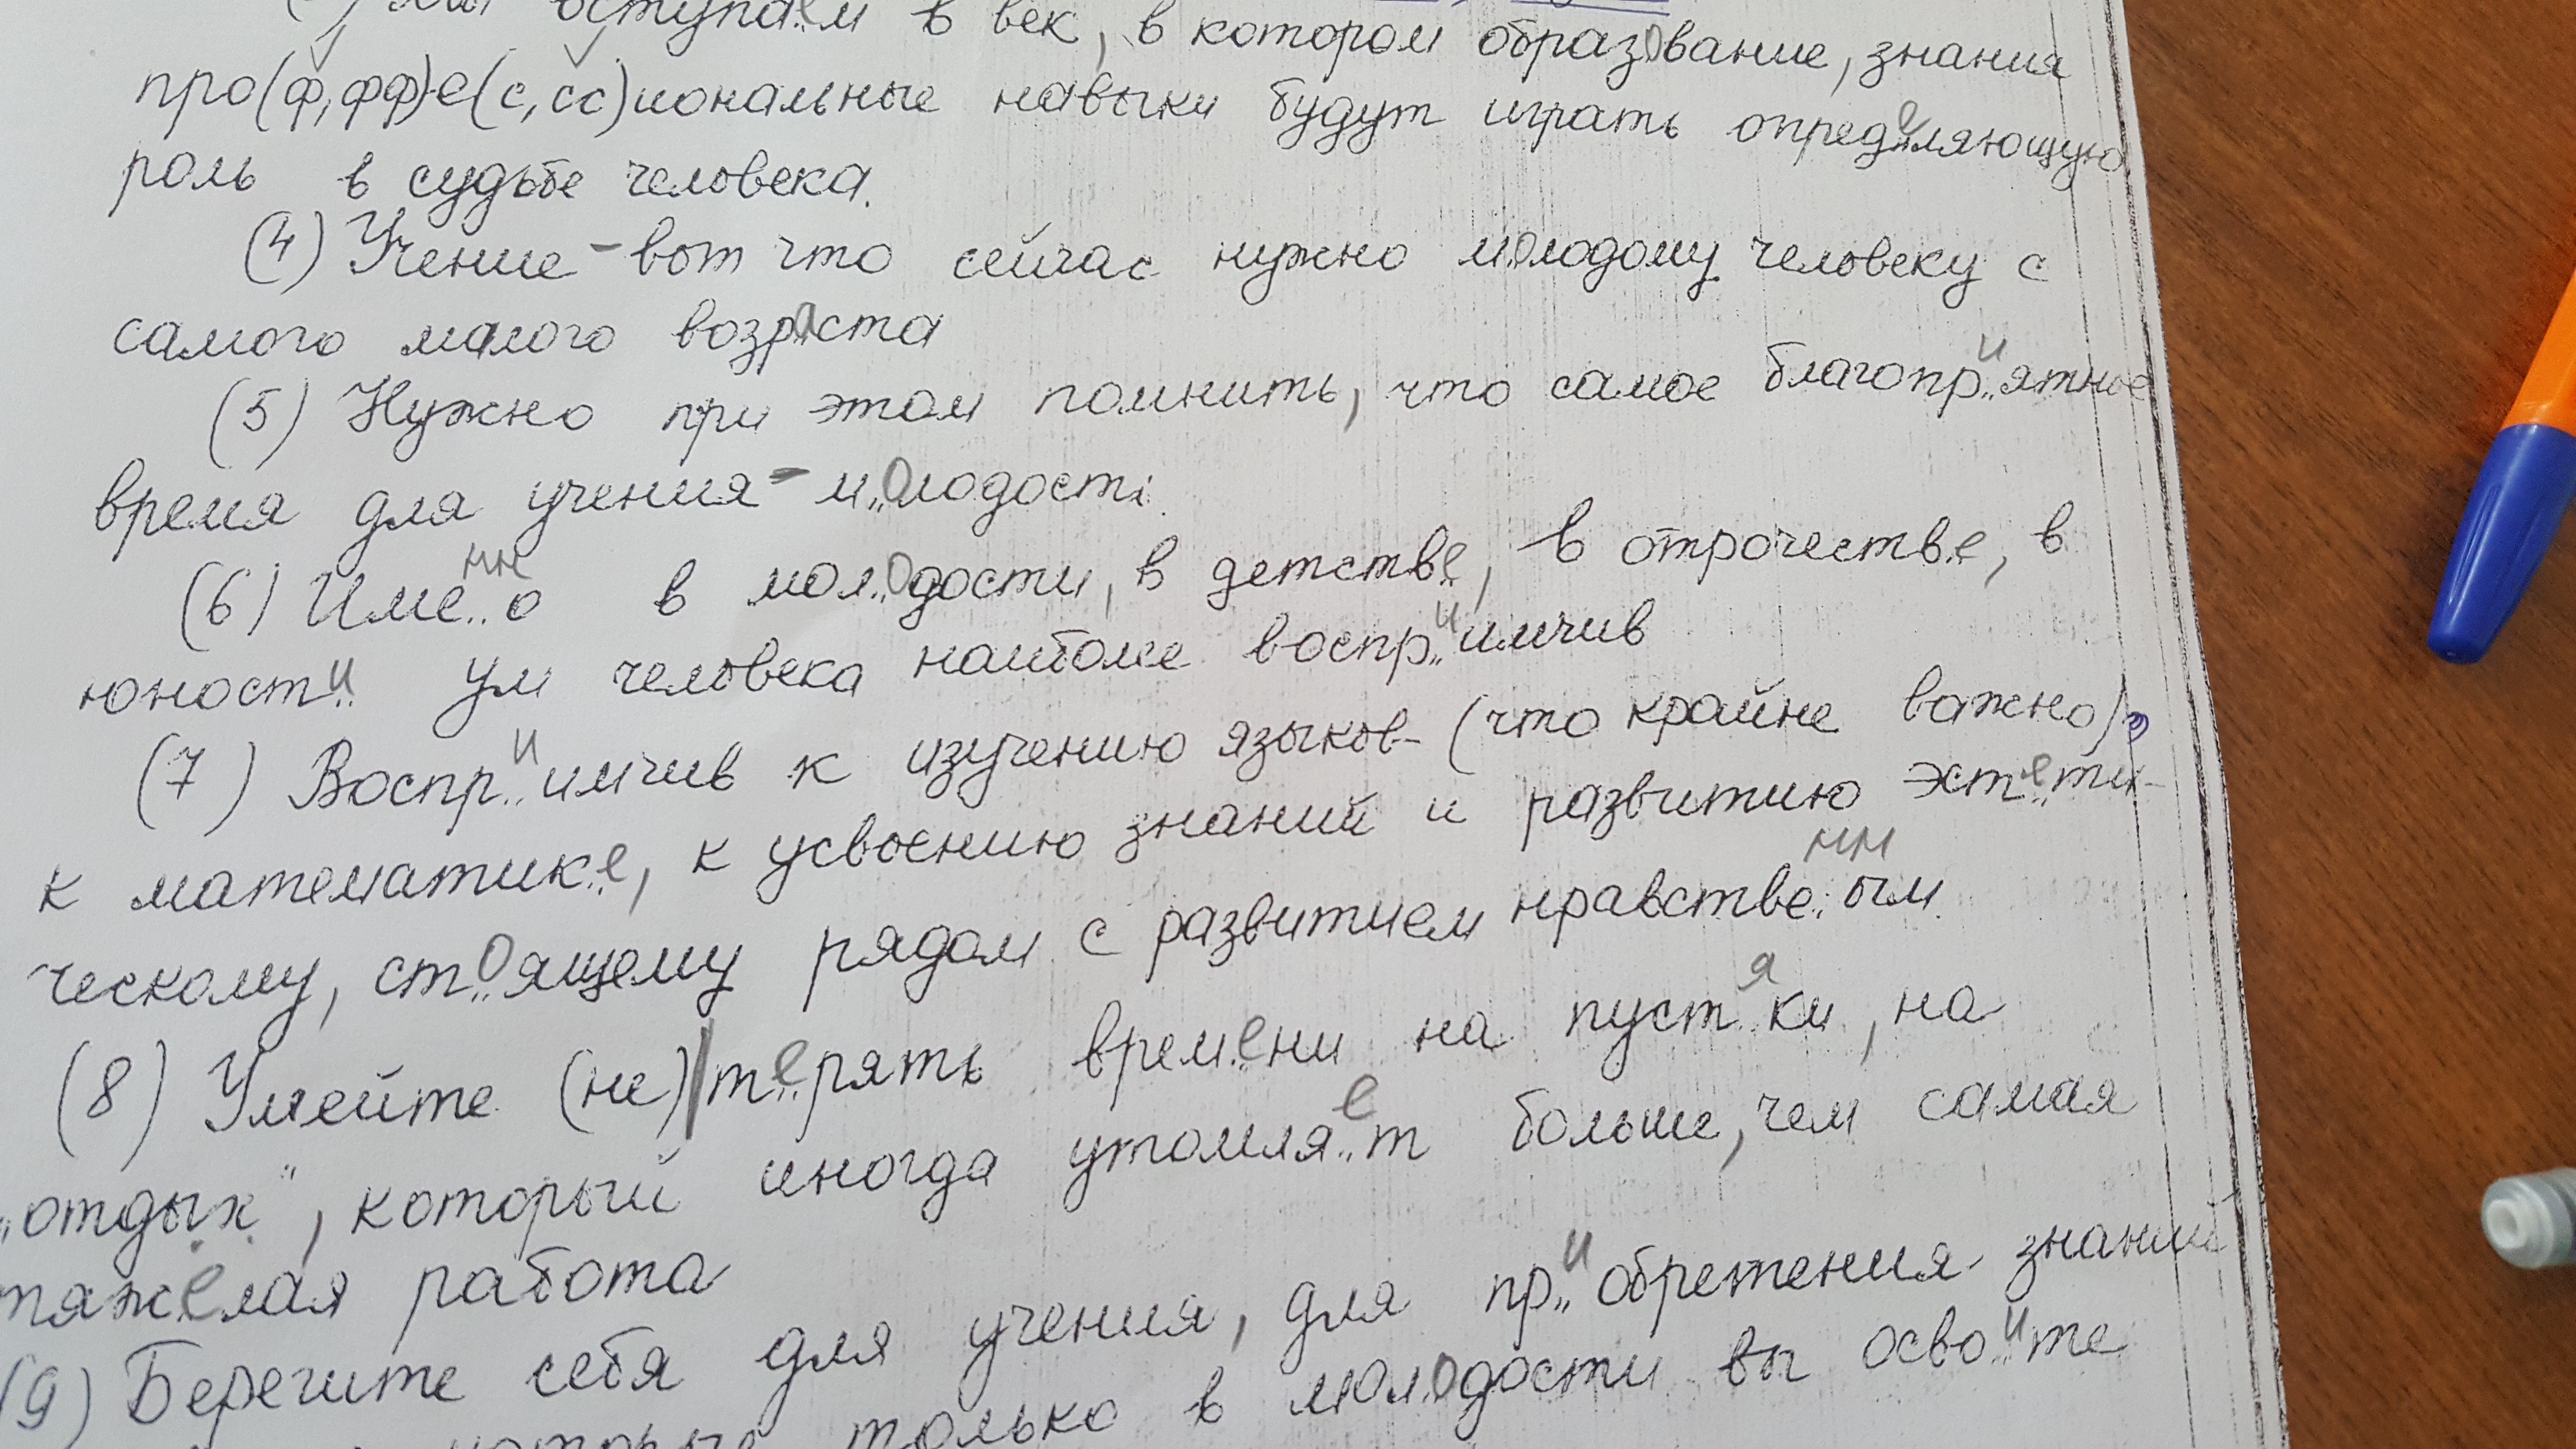 вступаем в век, в котором образование, знания
про(ф, фф)е(с, сс)иональные навыки будут играть определяющую
роль в судьбе человека.
(4) Учение - вот что сейчас нужно молодому человеку с
самого малого возраста
(5) Нужно при этом помнить, что самое благопр..иятное
время для учения - м..олодость.
(6) Име..нно в мол..одости, в детстве, в отрочестве, в
юност..и ум человека наиболее воспр..иимчив
(7) Воспр..иимчив к изучению языков - (что крайне важно),
к математик..е, к усвоению знаний и развитию эст..ети-
ческому, ст..оящему рядом с развитием нравстве..нным.
(8) Умейте (не)|т..ерять врем..ени на пуст..яки, на
„отдых", который иногда утомля..ет больше, чем самая
тяжелая работа
(9) Берегите себя для учения, для пр..иобретения знаний
которые только в мол..одости вы осво..ите